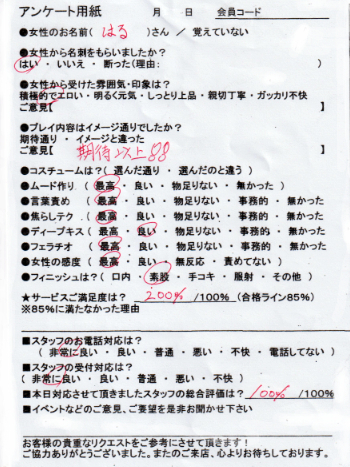 アンケート用紙　　月　　日　　会員コード
●女性のお名前( はる )さん / 覚えていない
●女性から名刺をもらいましたか?
はい ・ いいえ ・ 断った(理由: )
●女性から受けた雰囲気・印象は?
積極的でエロい・明るく元気・しっとり上品・親切丁寧・ガッカリ不快
ご意見【 】
●プレイ内容はイメージ通りでしたか?
期待通り ・ イメージと違った
ご意見【 期待以上 】
●コスチュームは?( 選んだ通り ・ 選んだのと違う )
●ムード作り ( 最高 ・ 良い ・ 物足りない ・ 無かった )
●言葉責め ( 最高 ・ 良い ・ 物足りない ・ 事務的 ・ 無かった
●焦らしテク ( 最高 ・ 良い ・ 物足りない ・ 事務的 ・ 無かった
●ディープキス ( 最高 ・ 良い ・ 物足りない ・ 事務的 ・ 無かった
●フェラチオ ( 最高 ・ 良い ・ 物足りない ・ 事務的 ・ 無かった
●女性の感度 ( 最高 ・ 良い ・ 無反応 ・ 責めてない )
●フィニッシュは?( 口内 ・ 素股 ・ 手コキ ・ 服射 ・ その他 )
★サービスご満足度は? 200% /100% (合格ライン85%)
※85%に満たなかった理由
■スタッフのお電話対応は?
( 非常に良い ・ 良い ・ 普通 ・ 悪い ・ 不快 ・ 電話してない )
■スタッフの受付対応は?
( 非常に良い ・ 良い ・ 普通 ・ 悪い ・ 不快 )
■本日対応させて頂きましたスタッフの総合評価は? 100% /100%
■イベントなどのご意見、ご要望を是非お聞かせ下さい
お客様の貴重なリクエストをご参考にさせて頂きます!
ご協力ありがとうございました。またのご来店、心よりお待ちしております。